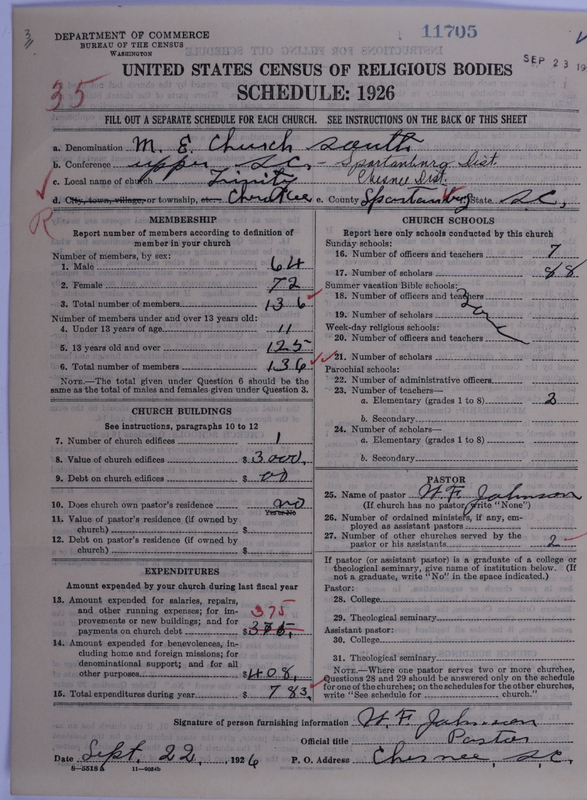 DEPARTMENT OF COMMERCE
BUREAU OF THE CENSUS
WASHINGTON
11705
SEP 23 19
UNITED STATES CENSUS OF RELIGIOUS BODIES
35
SCHEDULE: 1926
FILL OUT A SEPARATE SCHEDULE FOR EACH CHURCH. SEE INSTRUCTIONS ON THE BACK OF THIS SHEET
a. Denomination M. E. Church South
b. Conference upper S.C. - Spartanburg Dist.
c. Local name of church Trinity Chesnee Dist.
d. City, town, village, or township, etc. Cherokee e. County Spartanburg State S.C.
R
MEMBERSHIP
Report number of members according to definition of
member in your church
Number of members, by sex:
1. Male 64
2. Female 72
3. Total number of members 136
Number of members under and over 13 years old:
4. Under 13 years of age 11
5. 13 years old and over 125
6. Total number of members 136
NOTE.—The total given under Question 6 should be
same as the total of males and females given under Question 3.
CHURCH BUILDINGS
See instructions, paragraphs 10 to 12
7. Number of church edifices 1
8. Value of church edifices $ 3000.
9. Debt on church edifices $ 00
10. Does church own pastor's residence no
Yes or No
11. Value of pastor's residence (if owned by
church) $
12. Debt on pastor's residence (if owned by
church) $
EXPENDITURES
Amount expended by your church during last fiscal year
13. Amount expended for salaries, repairs,
and other running expenses; for im-
provements or new building; and for
payments on church debt $ 375
14. Amount expended for benevolences, in-
cluding home and foreign missions; for
denominational support; and for all
other purposes $ 408,
15. Total expenditures during year $ 783,
CHURCH SCHOOLS
Report here only schools conducted by this church
Sunday schools:
16. Number of officers and teachers 7
17. Number of scholars 88
Summer vacation Bible schools:
18. Number of officers and teachers
19. Number of scholars
Week-day religious schools:
20. Number of officers and teachers
21. Number of scholars
Parochial schools:
22. Number of administrative officers
23. Number of teachers—
a. Elementary (grades 1 to 8)
b. Secondary
24. Number of scholars—
a. Elementary (grades 1 to 8)
b. Secondary
PASTOR
25. Name of pastor W. F. Johnson
(If church has no pastor, write "None")
26. Number of ordained ministers, if any, em-
ployed as assistant pastors
27. Number of other churches served by the
pastor or his assistants 2
If pastor (or assistant pastor) is a graduate of a college or
theological seminary, give name of institution below. (If
not a graduate, write "No" in the space indicated.)
Pastor:
28. College
29. Theological seminary
Assistant pastor:
30. College
31. Theological seminary
NOTE.—Where one pastor serves two or more churches,
Questions 28 and 29 should be answered only on the schedule
for one of the churches; on the schedules for the other churches,
write "See schedule for church."
Signature of person furnishing information W. F. Johnson
Official title Pastor
Date Sept. 22, 1926 P. O. Address Chesnee, S.C.
8—5518a 11—9034b